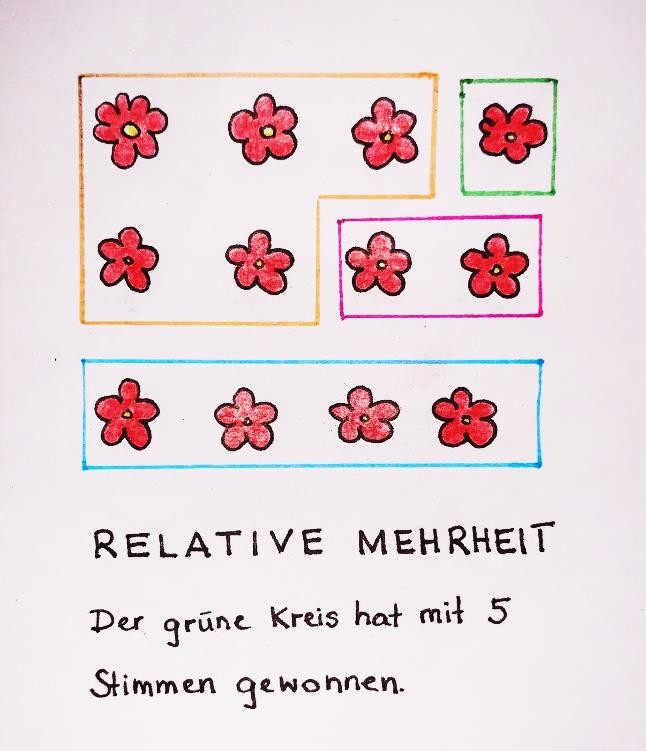 RELATIVE MEHRHEIT
Der grüne Kreis hat mit 5
Stimmen gewonnen.